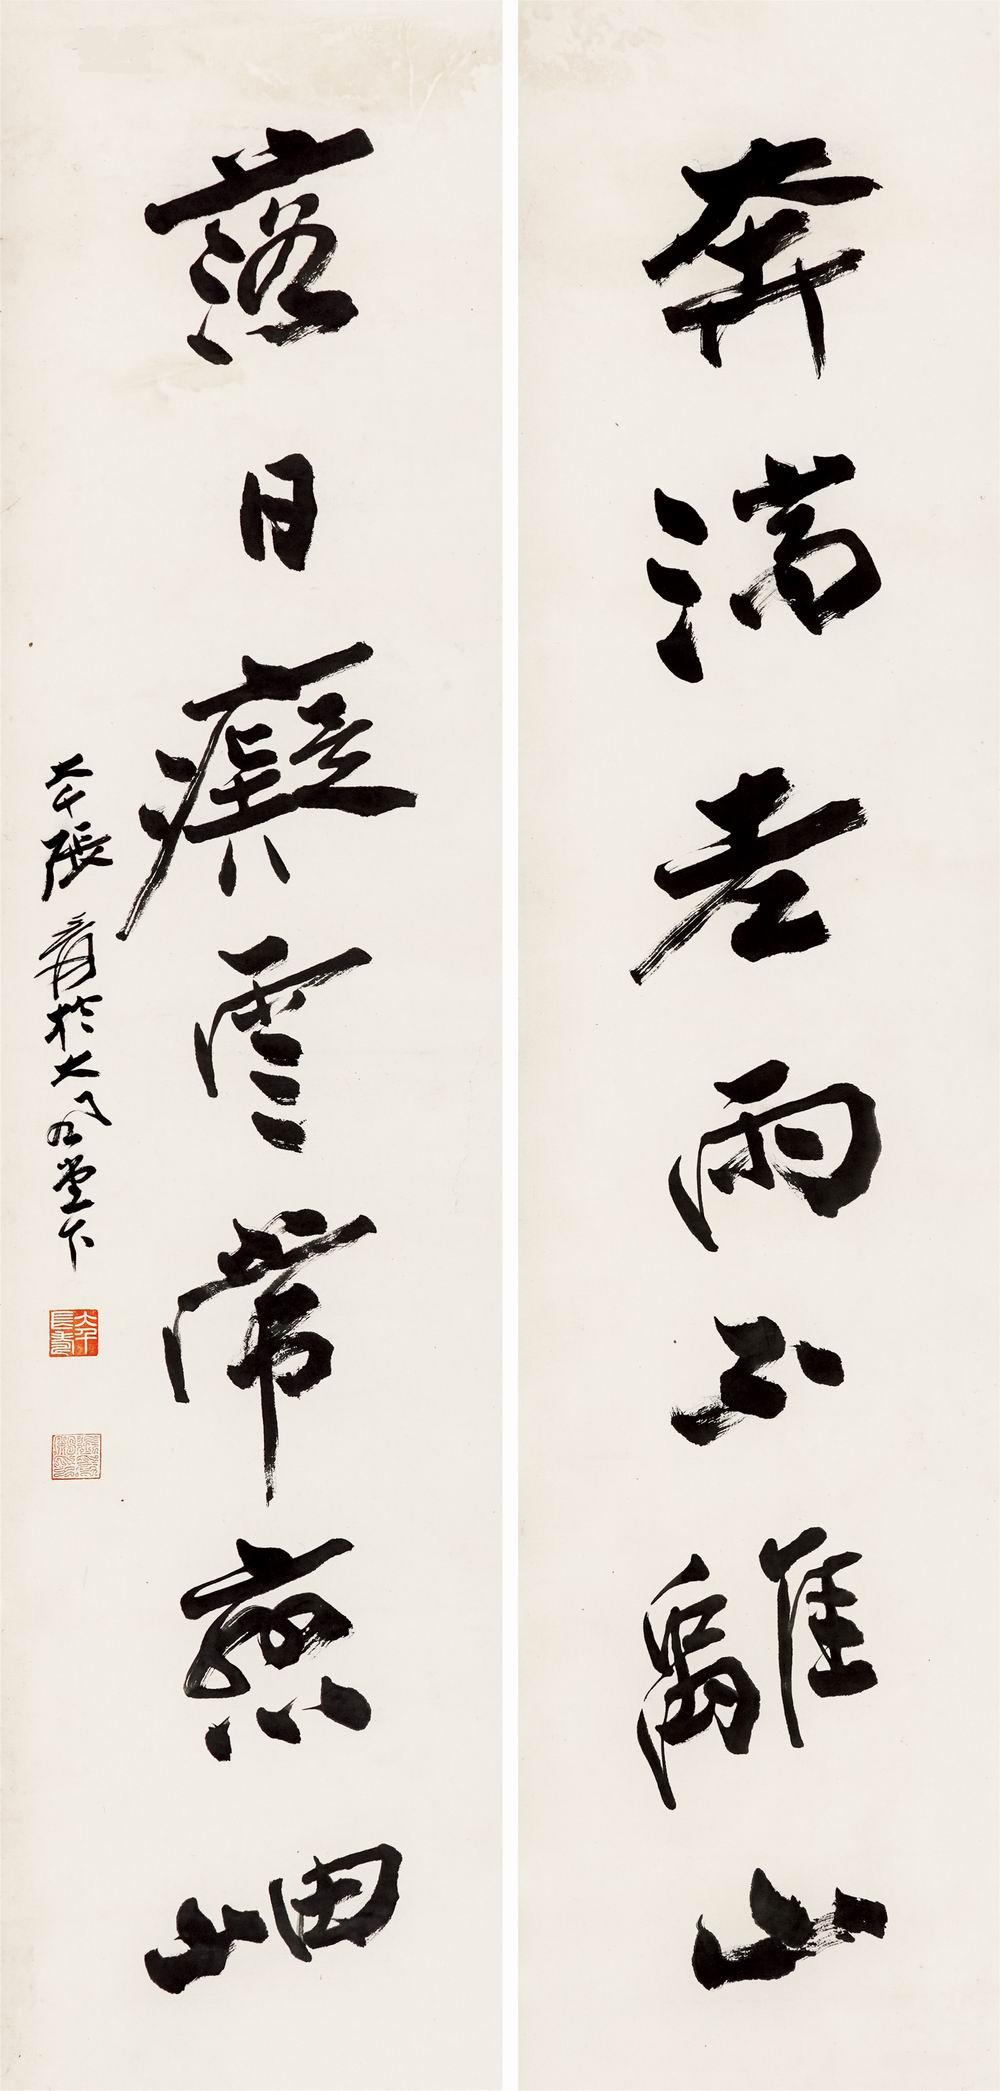 奔湍老雨不離山
落日癡雲常戀岫
大千張爰於大風堂下
大千長壽